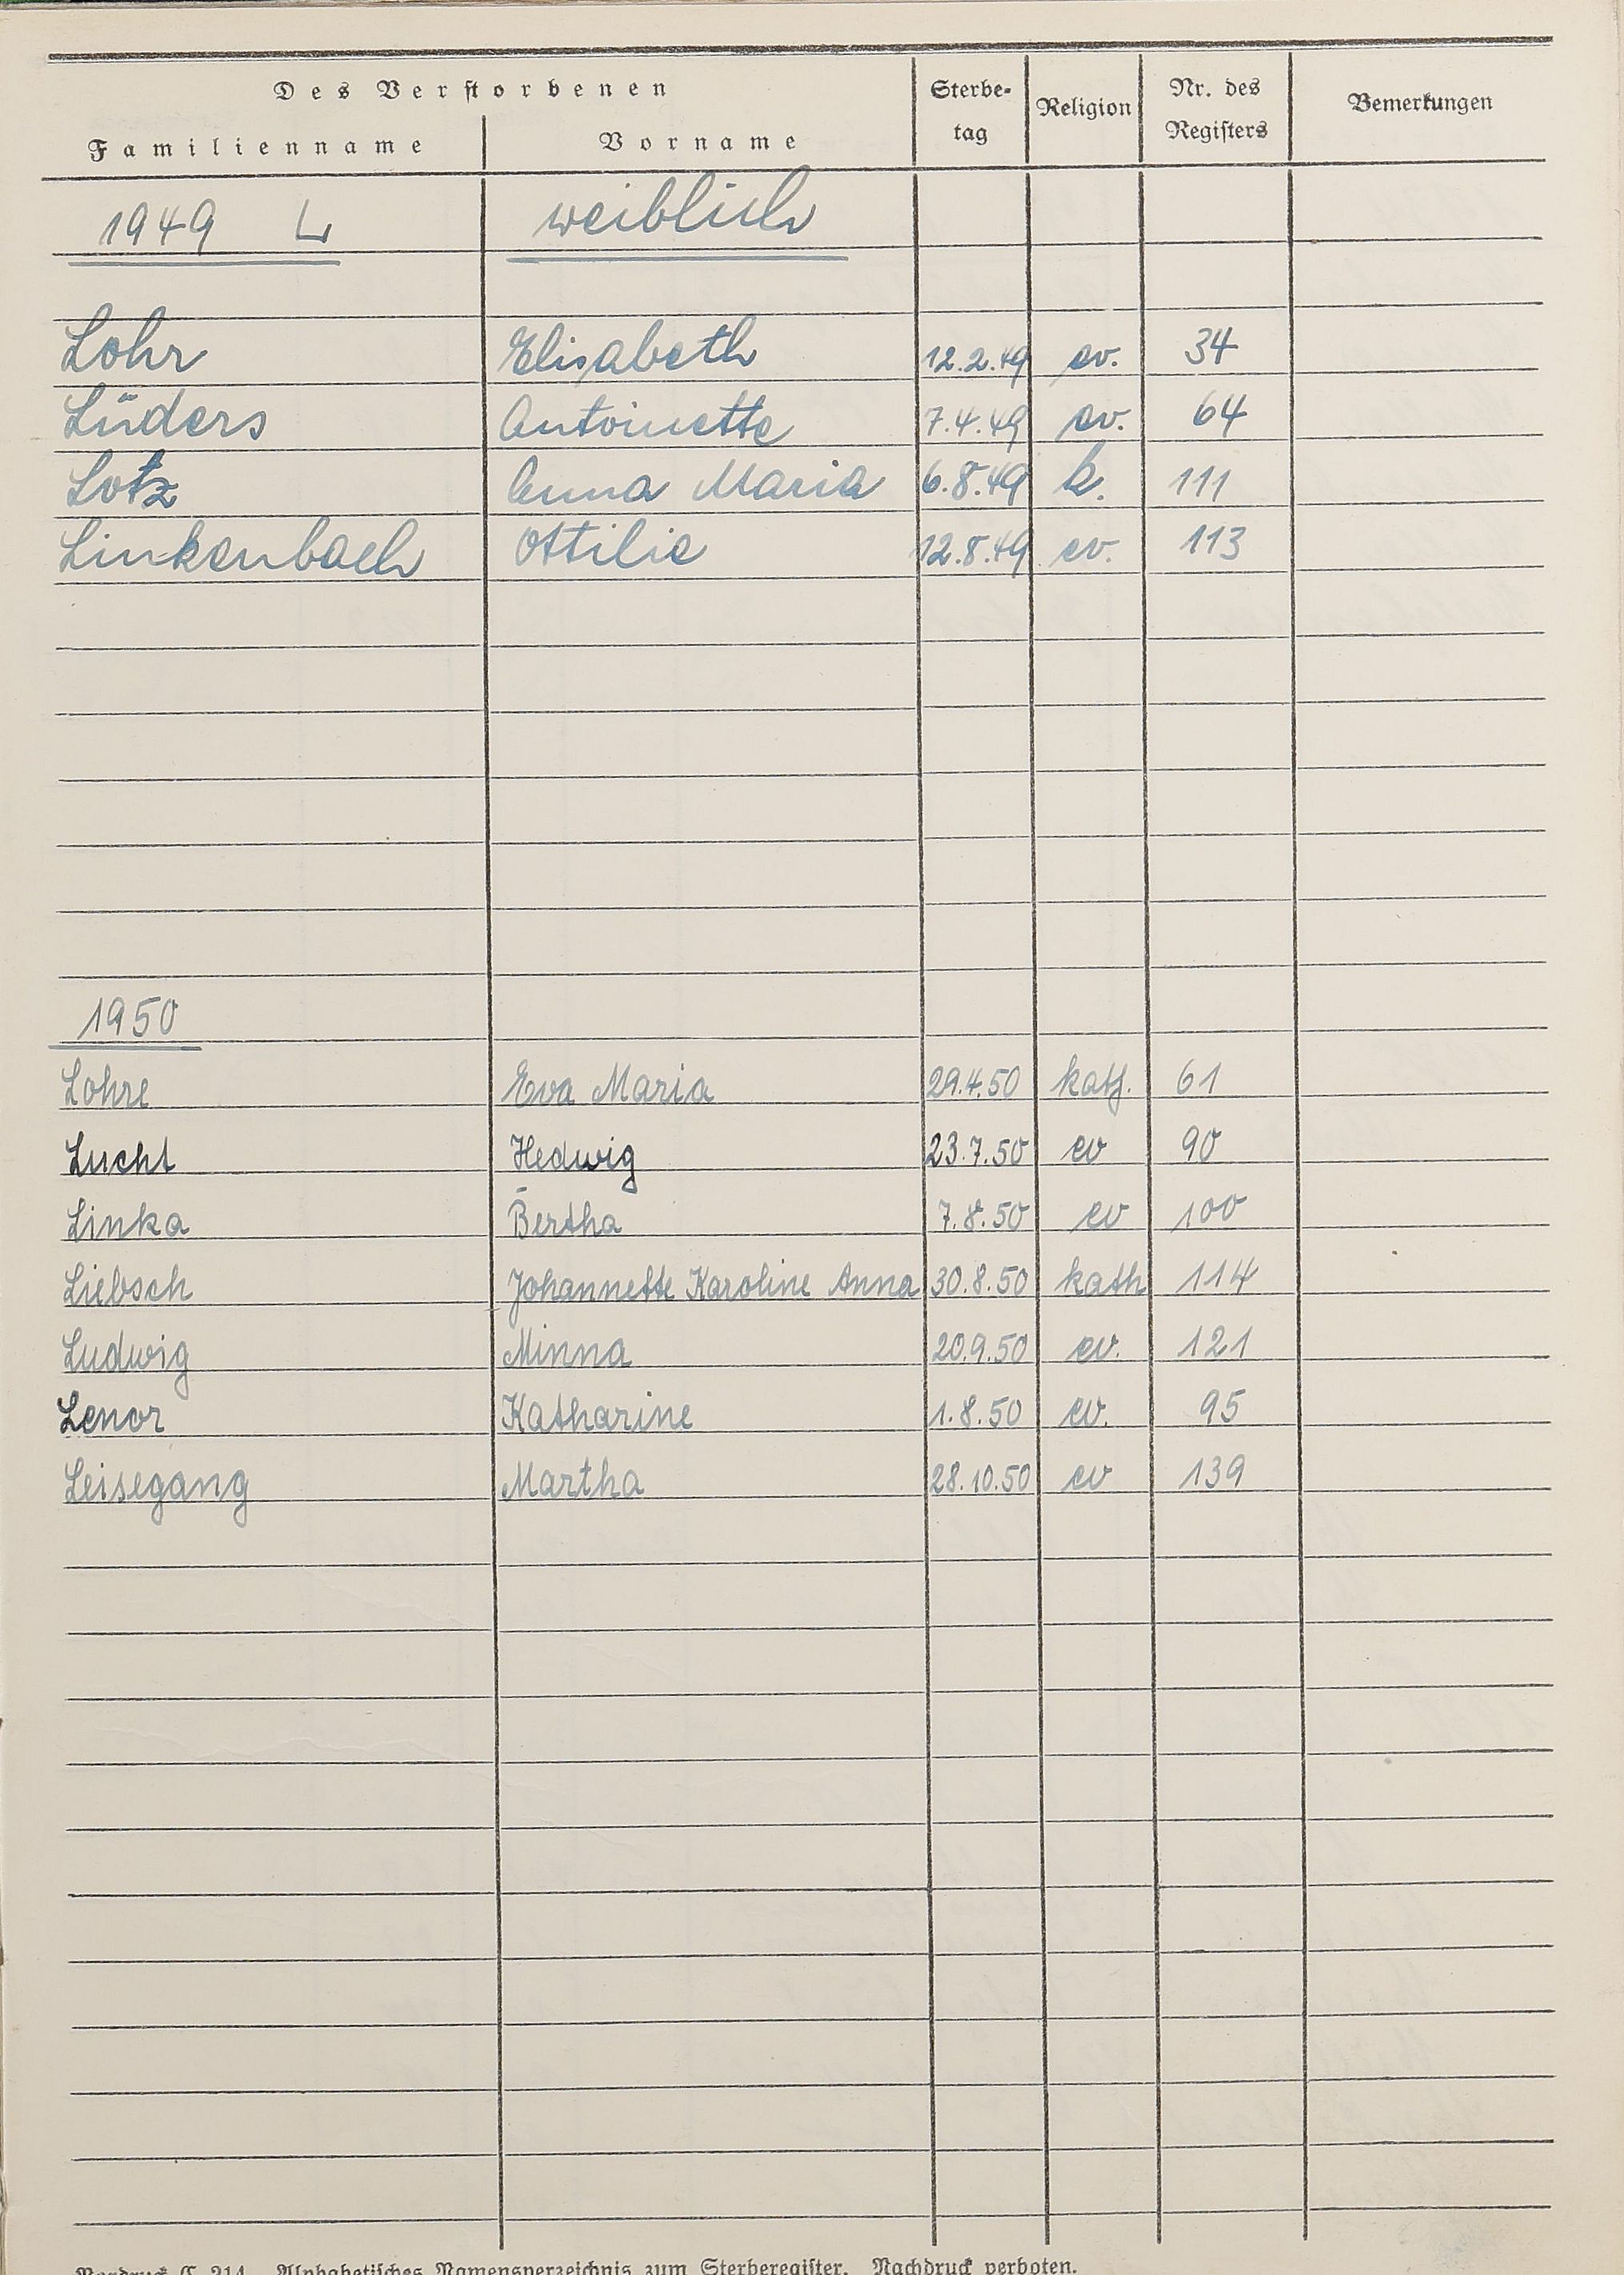 Des Verstorbenen
Familienname Vorname Sterbe-tag Religion Nr. des Registers Bemerkungen
1949 L weiblich
Lohr Elisabeth 12.2.49 ev. 34
Lüders Antoinette 7.4.49 ev. 64
Lotz Anna Maria 6.8.49 k. 111
Linkenbach Ottilie 12.8.49 ev. 113
1950
Lohre Eva Maria 29.4.50 kath. 61
Lucht Hedwig 23.7.50 ev 90
Linka Bertha 7.8.50 ev 100
Liebsch Johannette Karoline Anna 30.8.50 kath 114
Ludwig Minna 20.9.50 ev. 121
Lenor Katharine 1.8.50 ev. 95
Leisegang Martha 28.10.50 ev 139
Vordruck C 214 Alphabetisches Namensverzeichnis zum Sterberegister. Nachdruck verboten.